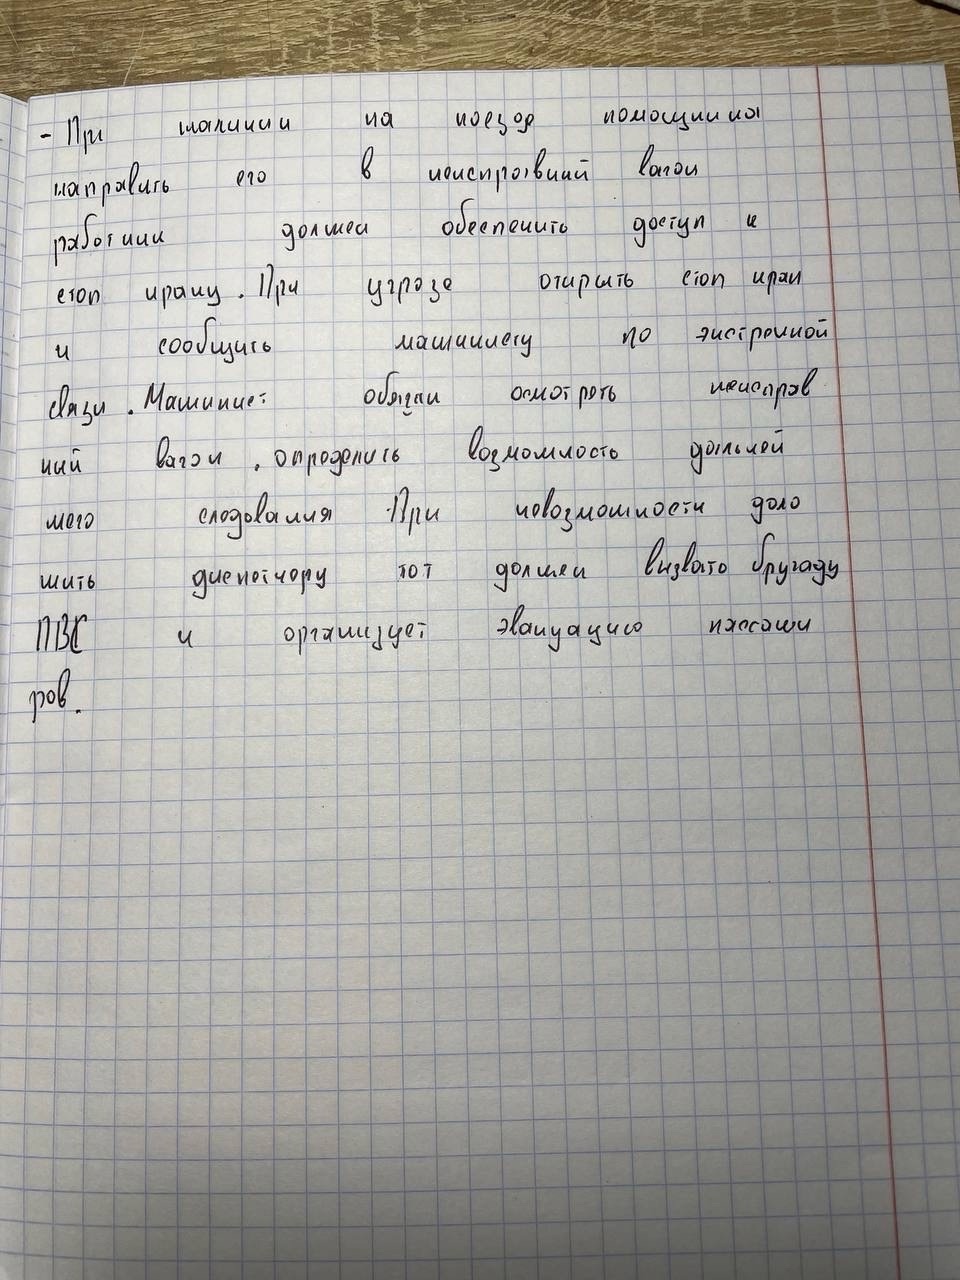 - При наличии на поезде помощника
направить его в неисправный вагон
работник должен обеспечить доступ к
стоп крану. При угрозе открыть стоп кран
и сообщить машинисту по экстренной
связи. Машинист обязан осмотреть неисправ
ный вагон, определить возможность дальней
шего следования. При невозможности доло
жить диспетчеру тот должен вызвать бригаду
ПВС и организует эвакуацию пассажи
ров.